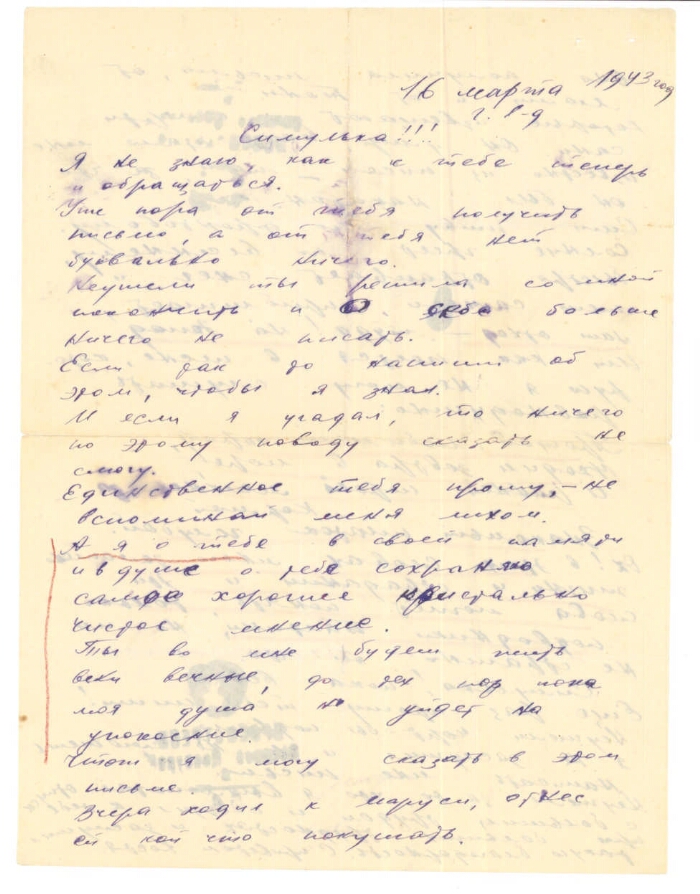 16 марта 1943 год
г. Р-д
Симулька!!!
Я не знаю, как к тебе теперь
и обращаться.
Уже пора от тебя получить
письмо, а от тебя нет
буквально ничего.
Неушели ты решила со мной
покончить и больше
ничего не писать.
Если так то напиши об
этом, чтобы я знал.
И если я угадал, то ничего
по этому поводу сказать не
смогу.
Единственное тебя прошу, – не
вспоминай меня лихом.
А я о тебе в своей памяти
и в душе о тебе сохраняю
самое хорошее кристалько
чистое мнение.
Ты во мне будеш жить
веки вечные, до тех пор пока
моя душа не уйдет на
упокоение.
Чтот я могу сказать в этом
письме.
Вчера ходил к маруси, отнес
ей кой что покушать.